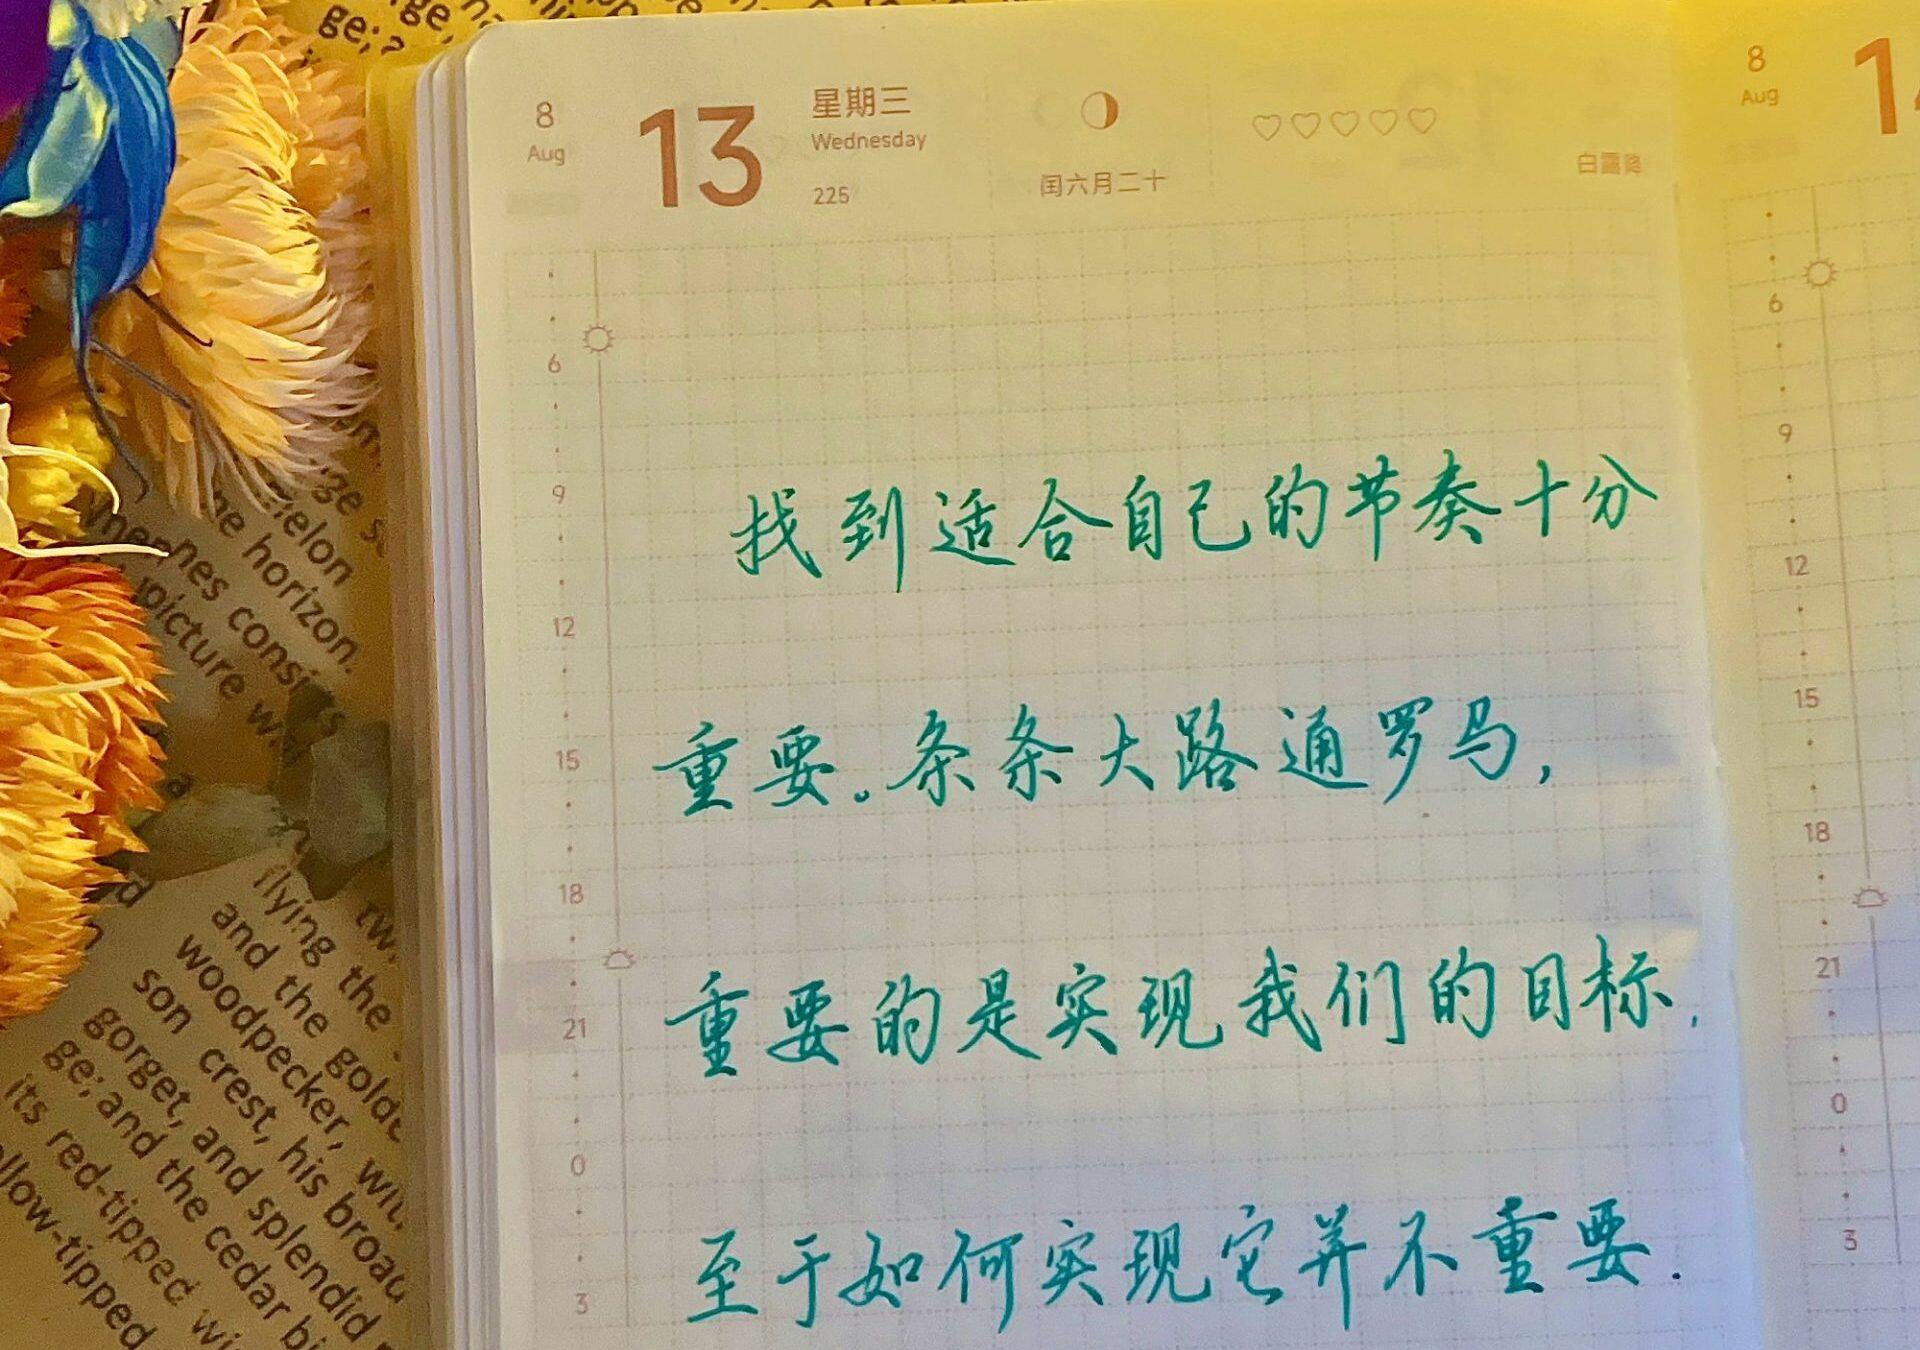 8
Aug
13
星期三
Wednesday
225
闰六月二十
白露降
6
9
12
15
18
21
0
3
找到适合自己的节奏十分
重要。条条大路通罗马,
重要的是实现我们的目标,
至于如何实现它并不重要.
8
Aug
6
9
12
15
18
21
0
3
ge;
the horizon.
nes consists
picture
flying the
and the golde
woodpecker, wit
son crest, his broad
gorget, and splendid
ge; and the cedar bi
its red-tipped wi
llow-tipped